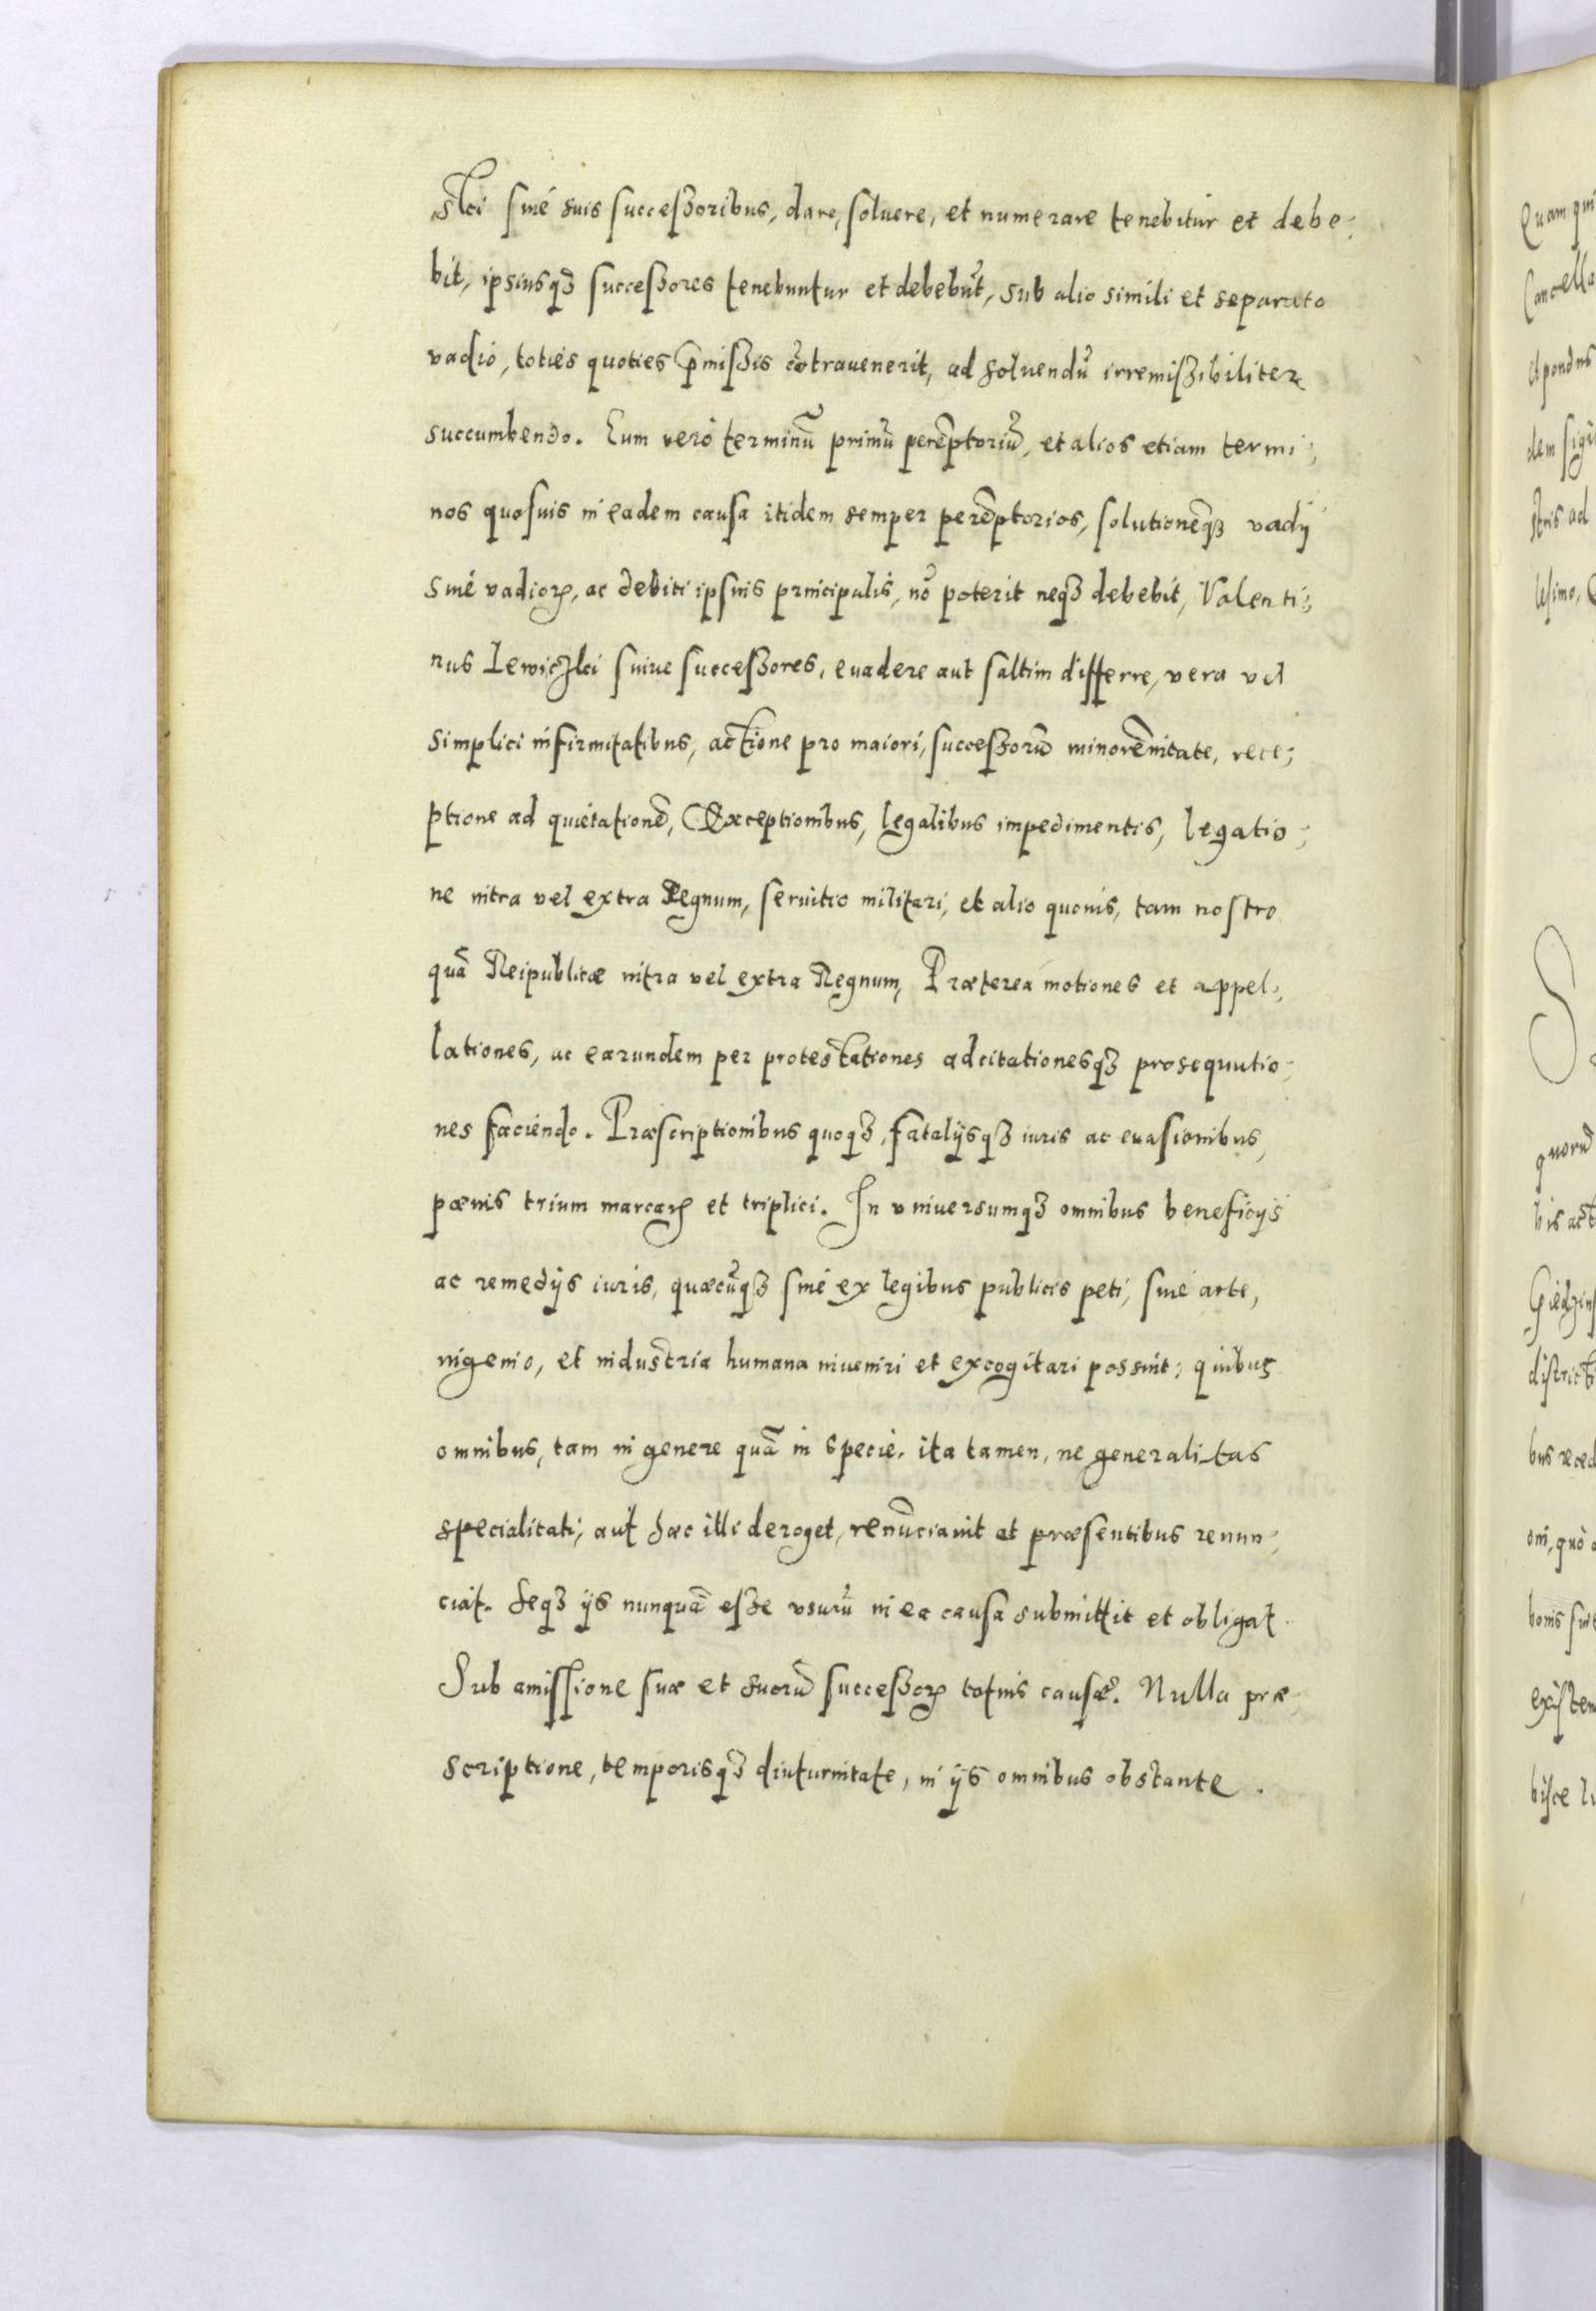 ski siué suis successoribus, dare, soluere, et numerare tenebitur et debe:
bit, ipsiusq₃ successores tenebuntur et debebũt, sub alio simili et separato
vadio, toties quoties p̄missis cõtrauenerit, ad soluendũ irremissibiliter
succumbendo. Eum verò terminũ primũ perẽptoriũ, et alios etiam termi:
nos quosuis in eadem causa itidem semper perẽptorios, solutionẽq₃ vadij
siué vadioꝝ, ac debiti ipsius principalis, nõ poterit neq₃ debebit, Valenti:
nus Lewiczki suiue successores, euadere aut saltim differre, vera vel
simplici infirmitatibus, actione pro maiori, successorũ minorẽnitate, rece:
ptione ad quietationẽ, Exceptionibus, legalibus impedimentis, legatio:
ne intra vel extra Regnum, seruitio militari, et alio quouis, tam nostro
quã Reipublicæ intra vel extra Regnum, Præterea motiones et appel:
lationes, ac earundem per protestationes adcitationesq₃ prosequutio:
nes faciendo. Præscriptionibus quoq₃, fatalijsq₃ iuris ac euasionibus,
pœnis trium marcaꝝ et triplici. In vniuersumq₃ omnibus beneficijs
ac remedijs iuris, quæcũq₃ siué ex legibus publicis peti, siué arte,
ingenio, et industria humana inueniri et excogitari possint; quibus
omnibus, tam in genere quã in specie. ita tamen, ne generalitas
specialitati, aut hæc illi deroget, renũciauit et præsentibus renun:
ciat. seq₃ ijs nunquã esse vsurũ in ea causa submittit et obligat
Sub amissione suæ et suorũ successoꝝ totius causæ. Nulla præ
scriptione, temporisq₃ diuturnitate, in ijs omnibus obstante.